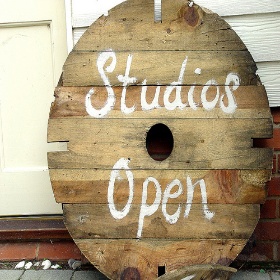 Studios
Open